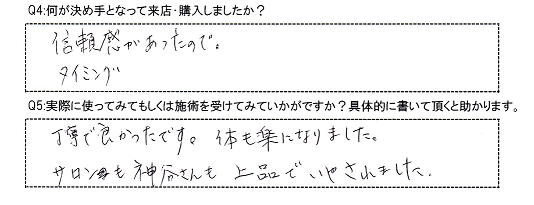 Q4:何が決め手となって来店・購入しましたか？
信頼感があったので。
タイミング
Q5:実際に使ってみてもしくは施術を受けてみていかがですか？具体的に書いて頂くと助かります。
丁寧で良かったです。体も楽になりました。
サロンも神谷さんも上品でいやされました.